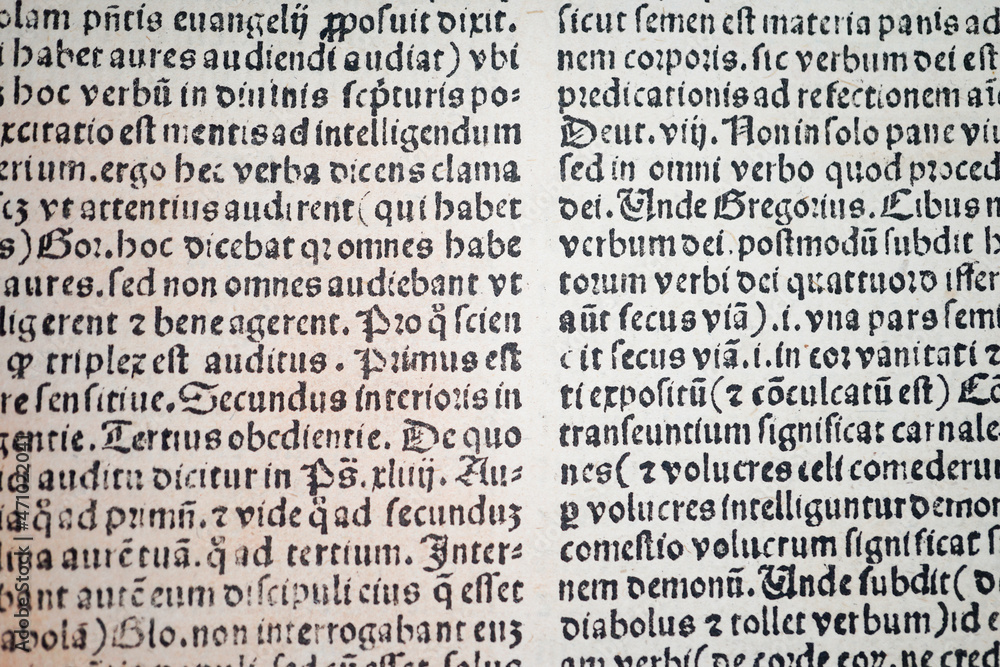 olam pñtis euangelij ꝓposuit dixit.
i habet aures audiendi audiat) vbi
hoc verbū in diuinis scp̄turis po⸗
xcitatio est mentis ad intelligendum
erium. ergo hec verba dicens clama
vt attentius audirent (qui habet
s) Gor. hoc dicebat qꝛ omnes habe
aures. sed non omnes audiebant vt
ligerent ⁊ bene agerent. Pro q̊ scien
ꝙ triplex est auditus. Primus est
re sensitiue. Secundus interioris in
gentie. Tertius obedientie. De quo
auditu dicitur in Ps̄. xliiij. Au⸗
q̊ ad primū. ⁊ vide q̊ ad secunduꝫ
aurē tuā. q̊ ad tertium. Inter⸗
bant autē eum discipuli eius q̄ esset
abola) Glo. non interrogabant euꝫ
sicut semen est materia panis ad
nem corporis. sic verbum dei est
predicationis ad refectionem aīe
Deut. viij. Non in solo pane viu
sed in omni verbo quod proced
dei. Unde Gregorius. Cibus m
verbum dei. postmodū subdit h
torum verbi dei quattuor differ
aūt secus viā).i. vna pars semi
cit secus viā.i. in cor vanitati ⁊
ti expositū (⁊ cōculcatū est) Co
transeuntium significat carnale
nes (⁊ volucres celi comederun
ꝑ volucres intelliguntur demon
comestio volucrum significat s
nem demonū. Unde subdit (d
diabolus ⁊ tollet verbum) id e
am verbi (de corde eoꝝ. ne cred
Adobe Stock | #471022041